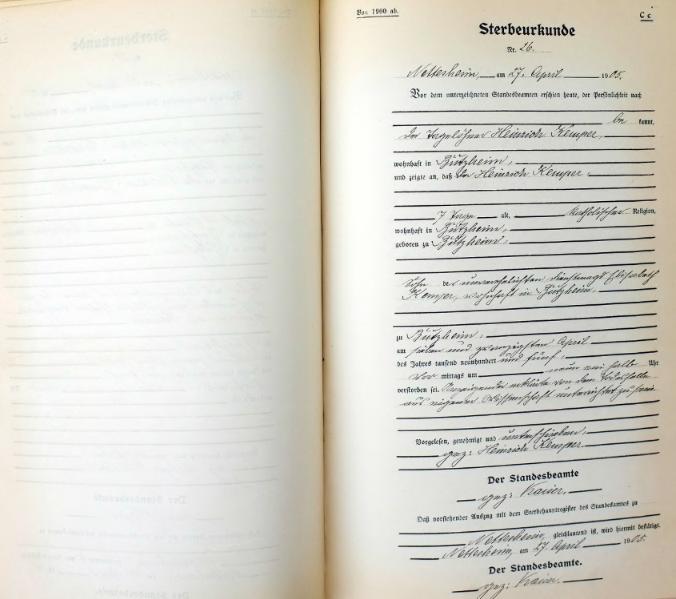 Bor 1900 ab.
C c
Sterbeurkunde
Nr. 26.
Nettersheim, am 27. April 1905.
Vor dem unterzeichneten Standesbeamten erschien heute, der Persönlichkeit nach
be kannt,
der Tagelöhner Heinrich Kemper,
wohnhaft in Butzheim,
und zeigte an, daß der Heinrich Kemper
7 Tage alt, katholischer Religion,
wohnhaft in Butzheim,
geboren zu Butzheim,
Sohn der unverehelichten Dienstmagd Elisabeth
Kemper, wohnhaft in Butzheim.
zu Butzheim,
am sieben und zwanzigsten April
des Jahres tausend neunhundert und fünf,
Vor mittags um neun ein halb Uhr
verstorben sei. Anzeigender erklärte von dem Todesfalle
aus eigener Wissenschaft unterrichtet zu sein
Vorgelesen, genehmigt und unterschrieben,
gez: Heinrich Kemper
Der Standesbeamte
gez: Kaiser.
Daß vorstehender Auszug mit dem Sterbehauptregister des Standesamtes zu
Nettersheim, gleichlautend ist, wird hiermit bestätigt.
Nettersheim, am 27. April 1905.
Der Standesbeamte.
gez: Kaiser.